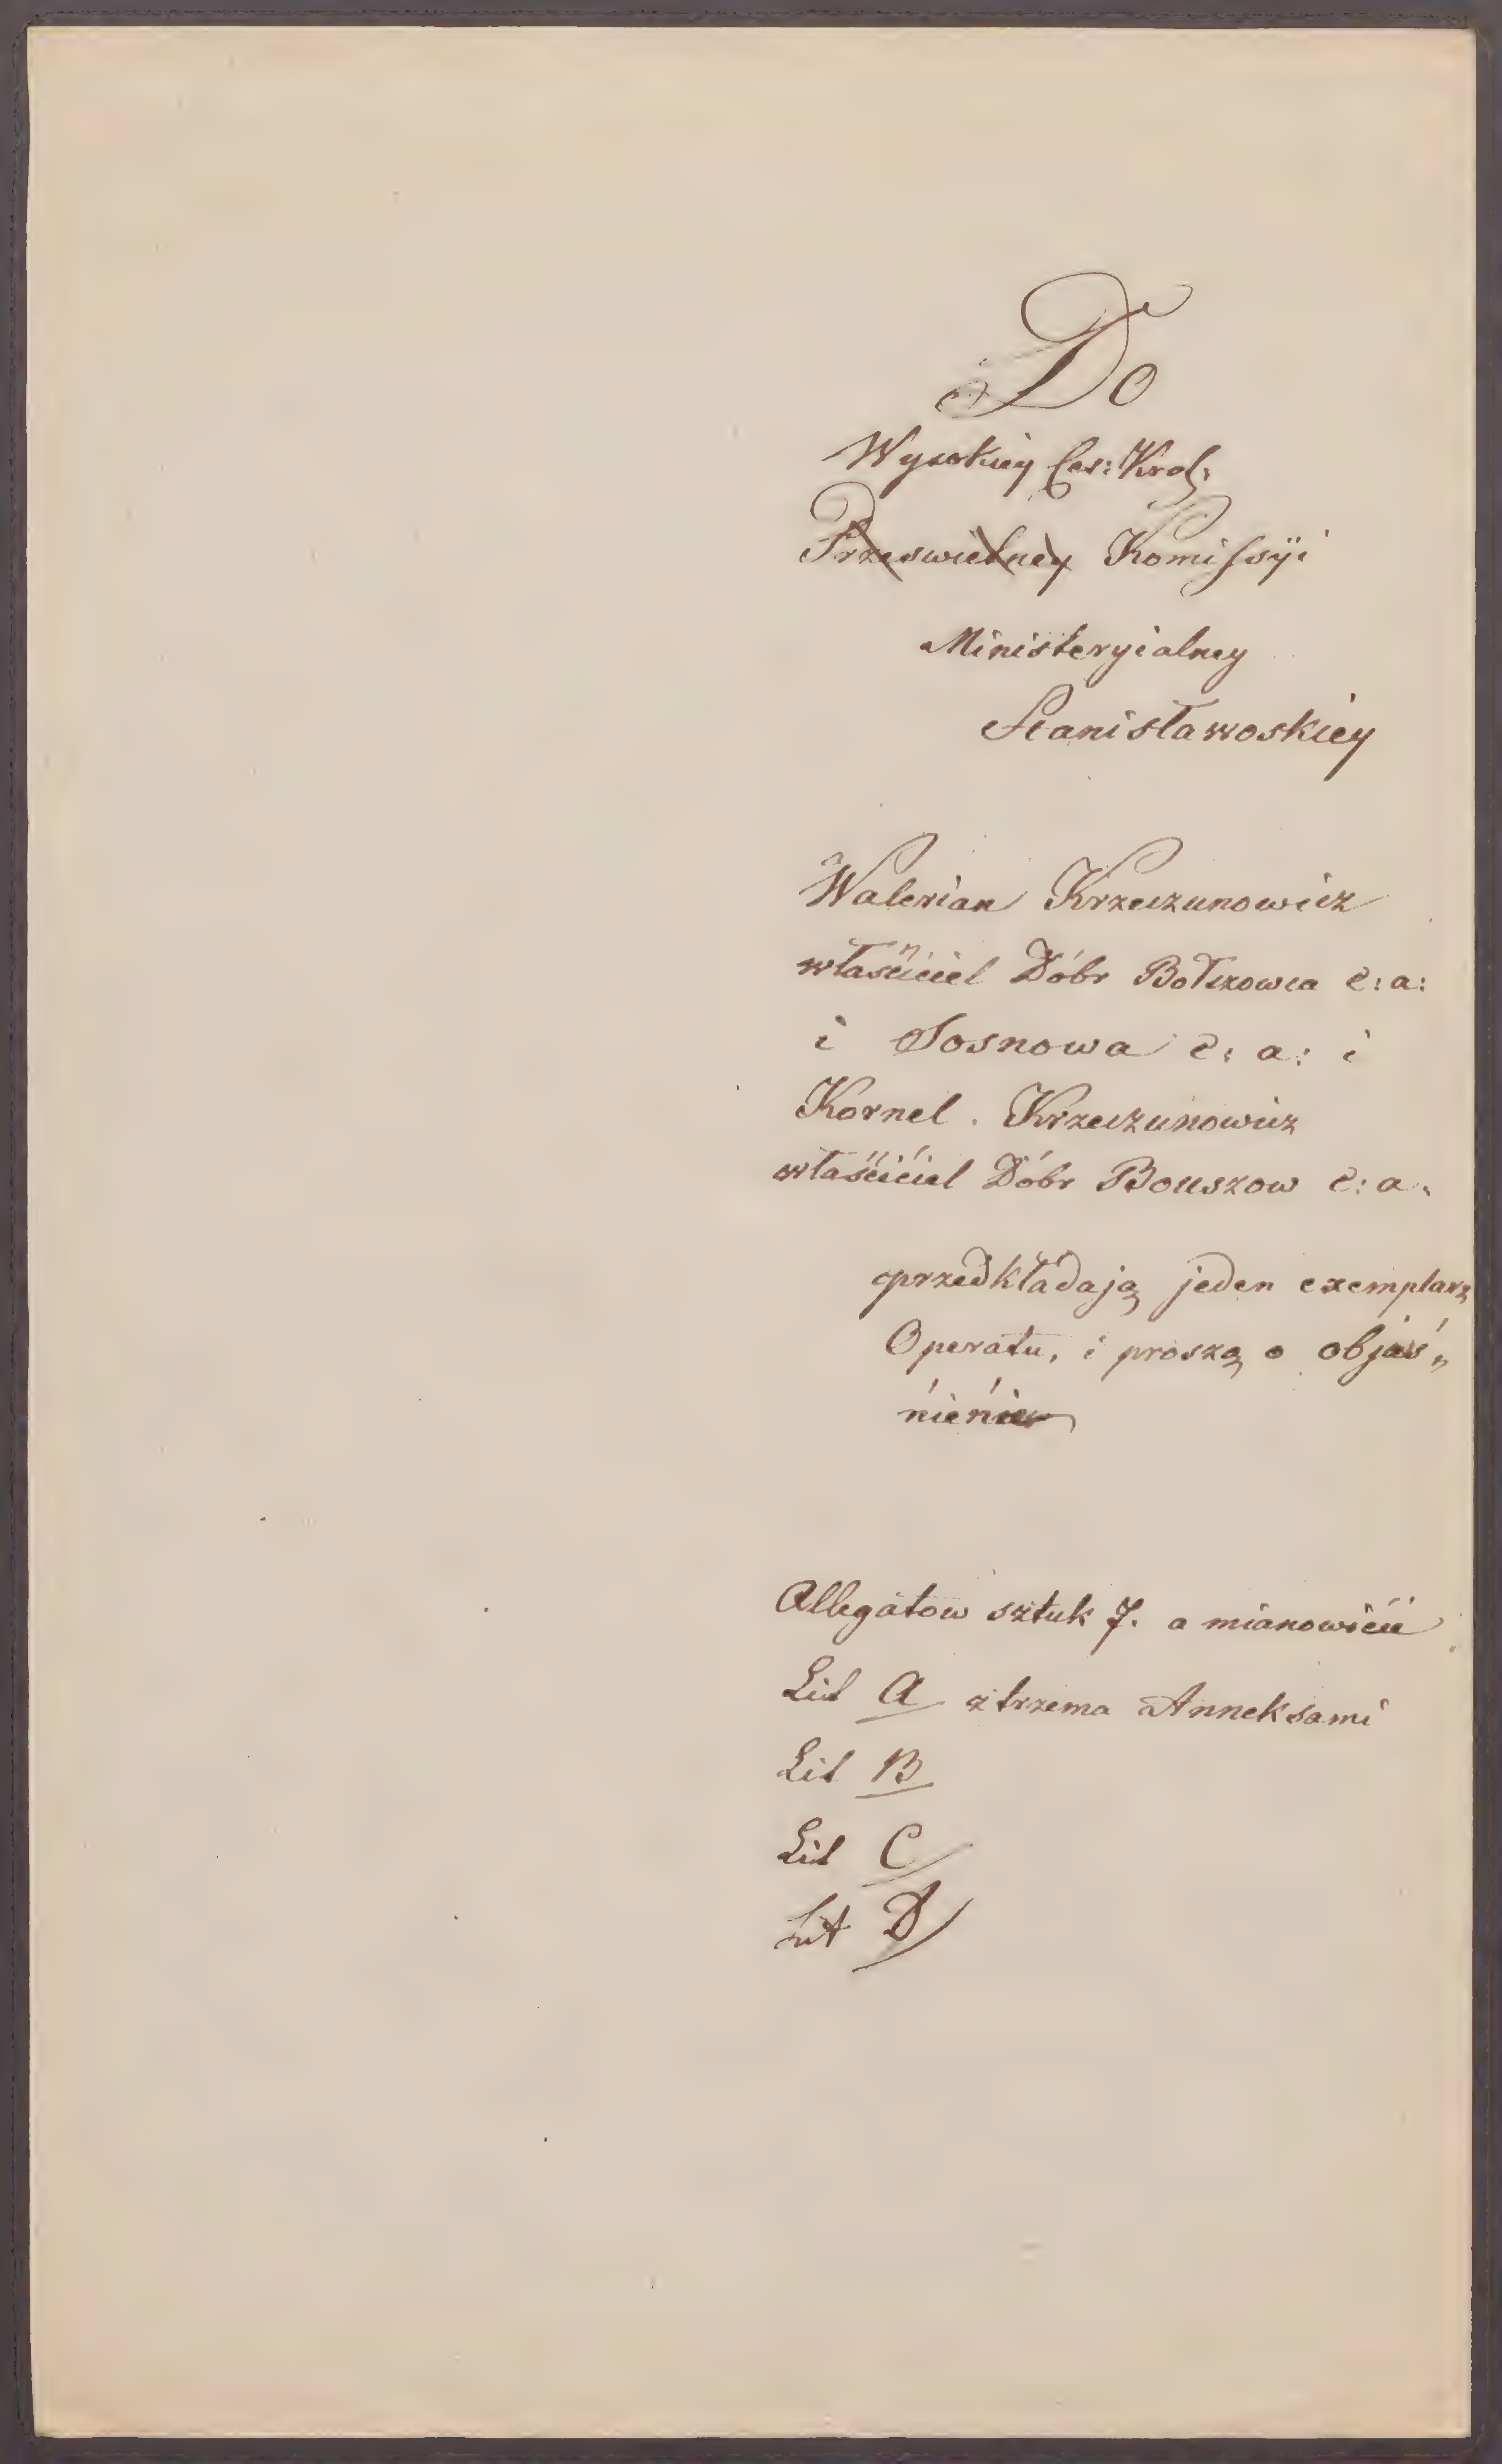 Do
Wysokiey Ces: Krol:
Przeswietney Komissyi
Ministeryialney
Stanisławoskiey
Walerian Krzeczunowicz
właściciel Dóbr Bołszowca c: a:
i Sosnowa c: a: i
Kornel Krzeczunowicz
właściciel Dóbr Bouszow c: a.
przedkładają jeden exemplarz
Operatu, i proszą o objaś„
nienie
Allegatow sztuk 7. a mianowicie
Lit A z trzema Anneksami
Lit B
Lit C
Lit D